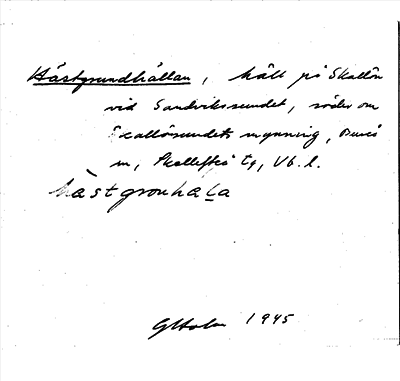 Hästgrundhällan, häll på Skallön
vid Sandvikssundet, söder om
Skallösundets mynning, Bureå
sn, Skellefteå tg, Vb. l.
hàstgronhaLa
GHolm 1945